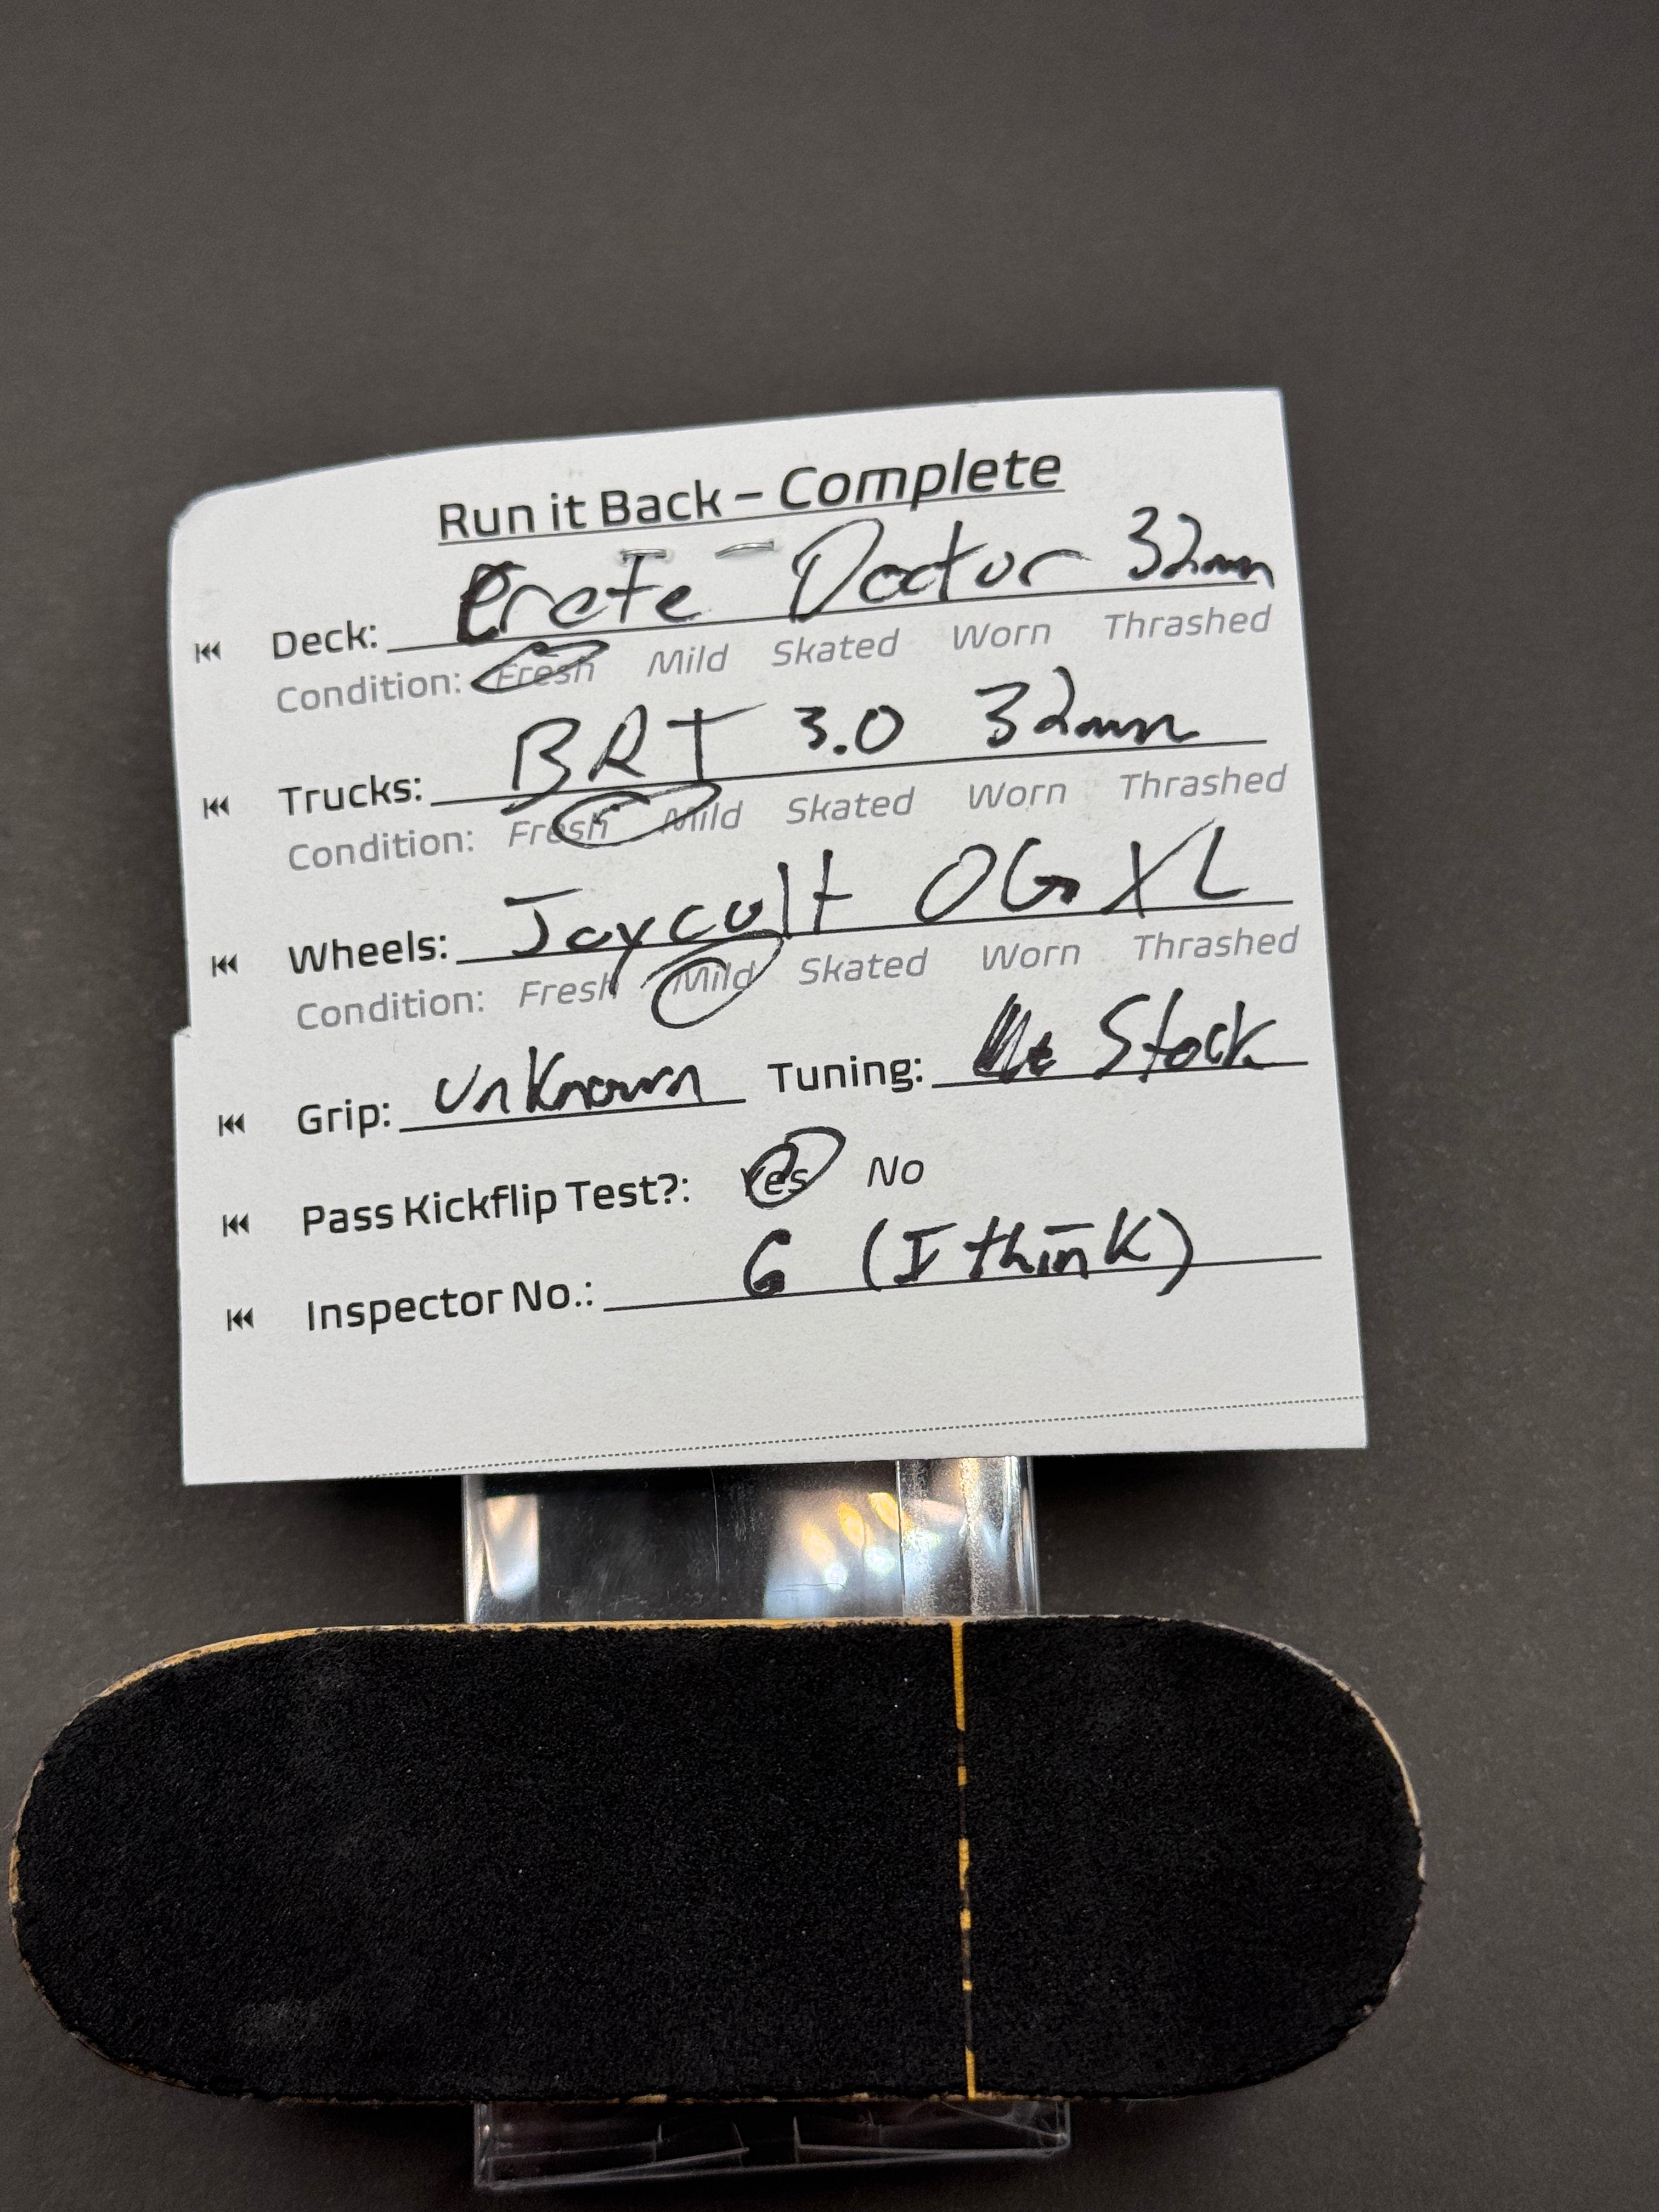 Run it Back – Complete
Deck: Crete Doctor 32mm
Condition: Fresh Mild Skated Worn Thrashed
Trucks: BRT 3.0 32mm
Condition: Fresh Mild Skated Worn Thrashed
Wheels: Joycult OG XL
Condition: Fresh Mild Skated Worn Thrashed
Grip: Unknown Tuning: Stock
Pass Kickflip Test?: Yes No
Inspector No.: 6 (I think)